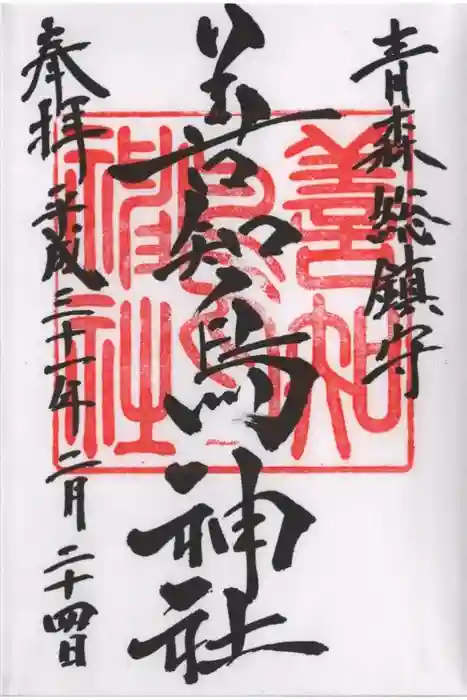 青森総鎮守
善知鳥神社
奉拝
平成三十一年二月二十四日
善知鳥神社